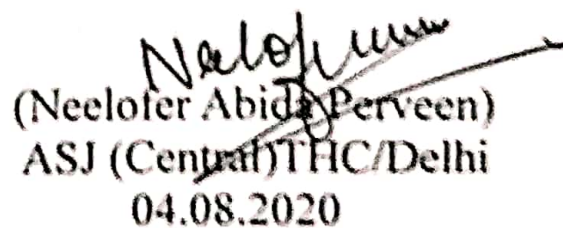 Neelofer
(Neelofer Abida Perveen)
ASJ (Central)THC/Delhi
04.08.2020